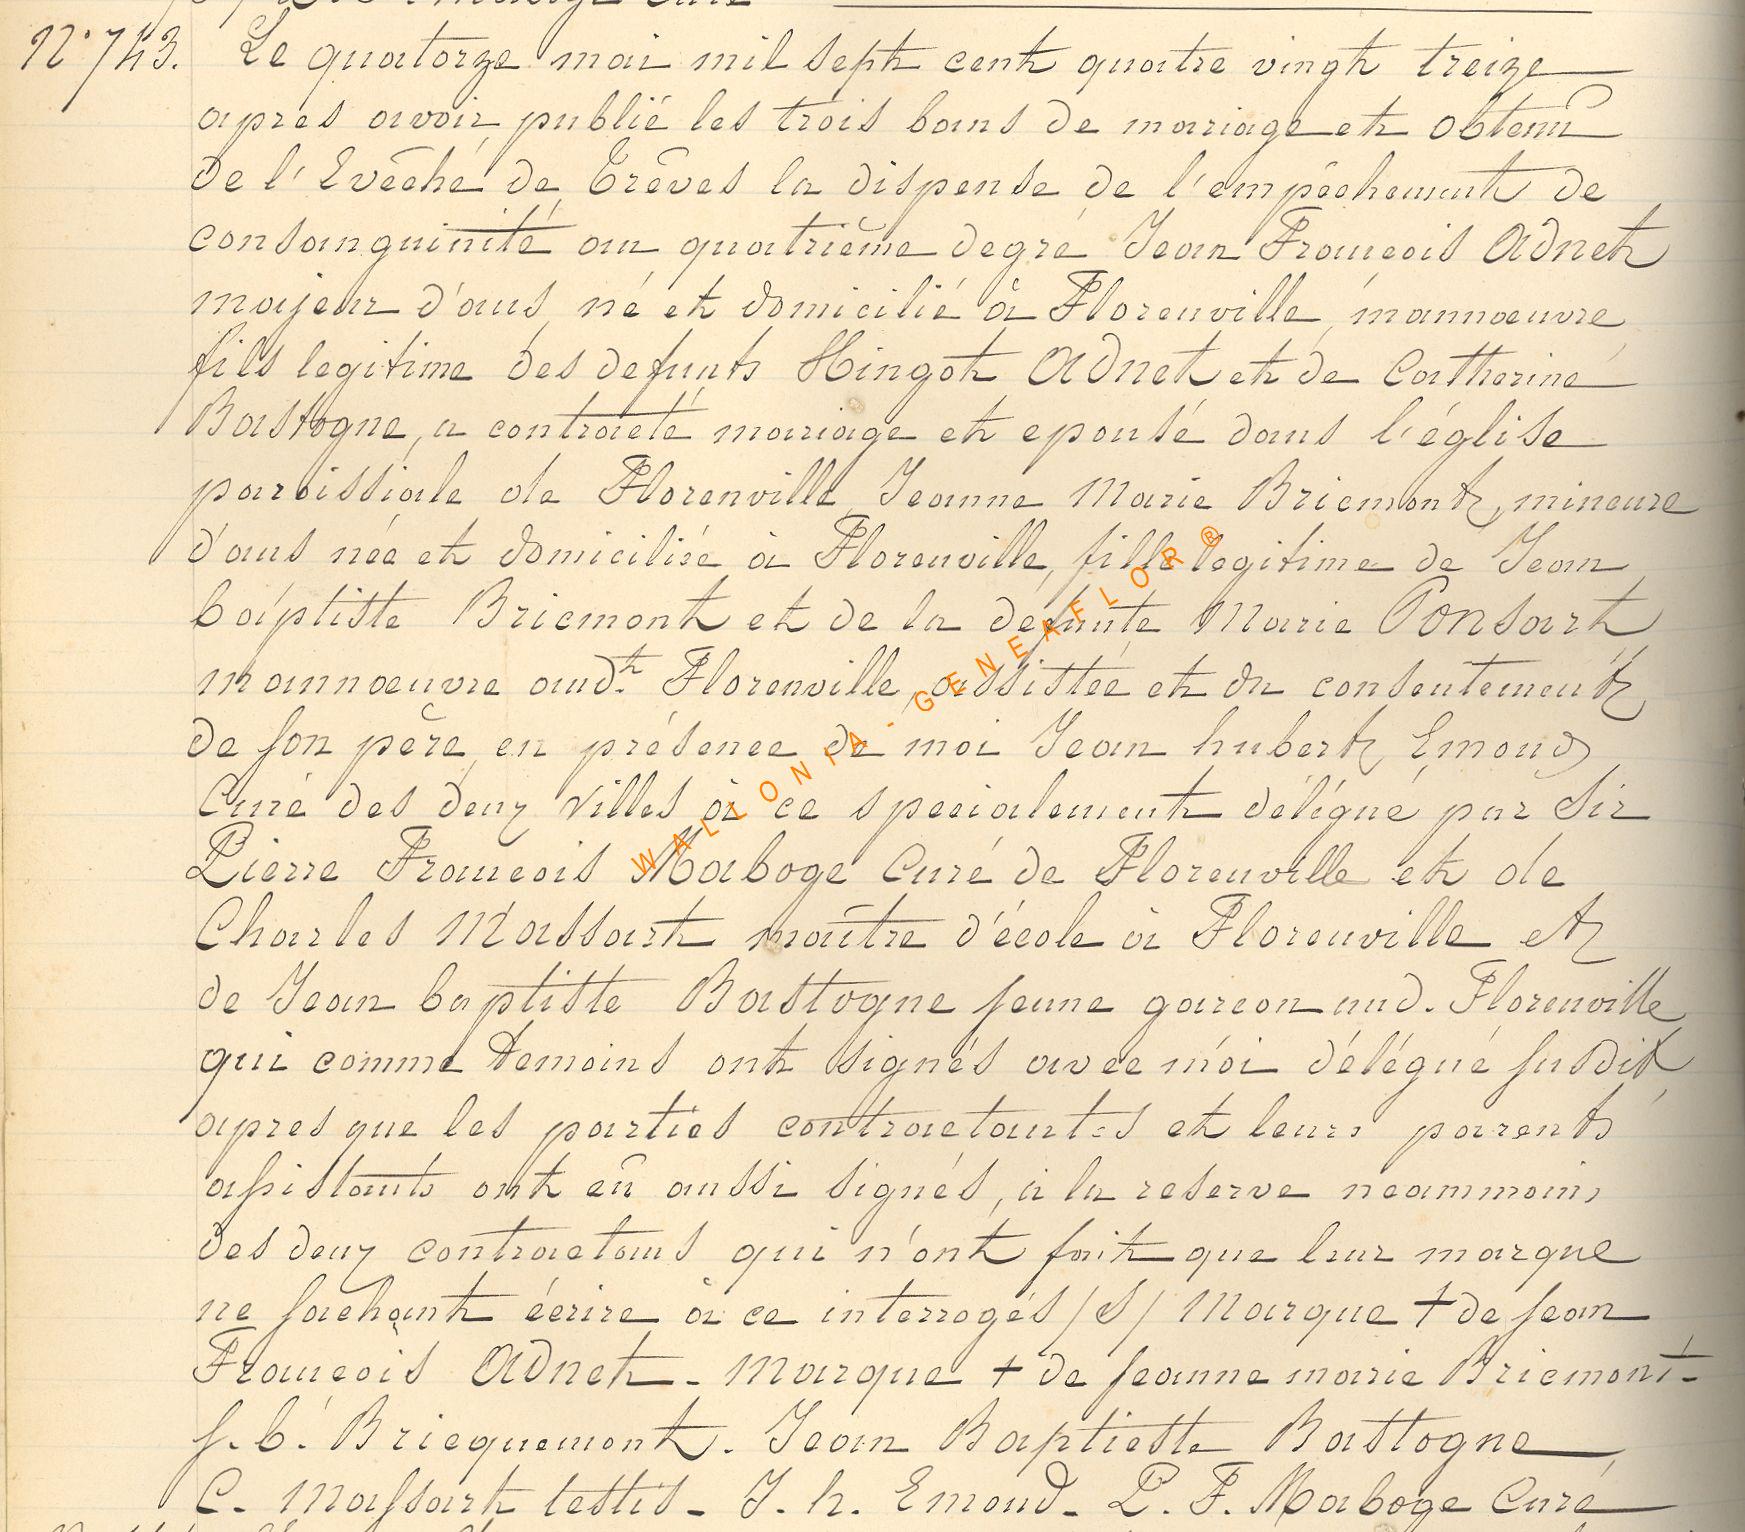 N° 743. Le quatorze mai mil sept cent quatre vingt treize
apres avoir publié les trois bans de mariage et obtenu
de l'Evêché de Trêves la dispense de l'empêchement de
consanguinité au quatrième degré Jean Francois Adnet
majeur d'ans né et domicilié à Florenville, mannœuvre
fils legitime des defunts Hingot Adnet et de Catherine
Bastogne, a contracté mariage et epousé dans l'église
paroissiale de Florenville Jeanne Marie Bricmont, mineure
d'ans née et domiciliée à Florenville, fille legitime de Jean
baptiste Bricmont et de la defunte Marie Ponsart
mannoeuvre aud.t Florenville, assistée et du consentement
de son père, en présence de moi Jean hubert Emond
Curé des deux villes à ce specialement délégué par Sir
Pierre Francois Maboge Curé de Florenville et de
Charles Massart maître d'école à Florenville et
de Jean baptiste Bastogne jeune garcon aud. Florenville
qui comme temoins ont signés avec moi délégué susdit
apres que les parties contractantes et leurs parents
assistants ont eu aussi signés, a la reserve neammoins
des deux contractans qui n'ont fait que leur marque
ne sachant écrire à ce interrogés /S/ Marque + de jean
Francois Adnet - Marque + de jeanne marie Bricmont -
j. b. Bricquemont. Jean Baptiette Bastogne
C. Massart testis - J. h. Emond - P. F. Maboge Curé
WALLONIA - GENEAFLOR ®